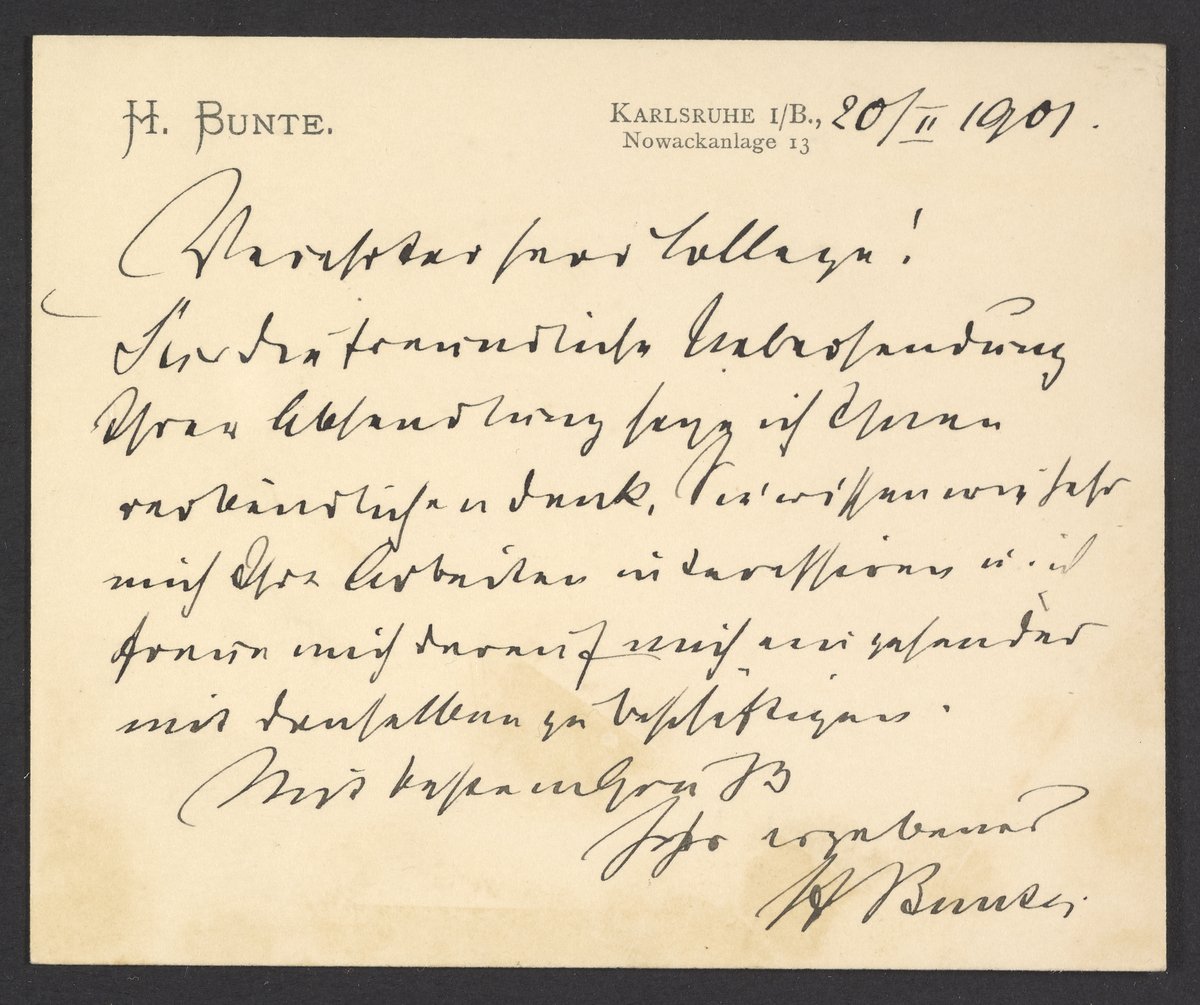 H. BUNTE.
KARLSRUHE I/B., 20/II 1901.
Nowackanlage 13
Verehrter Herr College!
Für die freundliche Uebersendung
Ihrer Abhandlung sage ich Ihnen
verbindlichen Dank. Sie wissen wie sehr
mich Ihre Arbeiten interessiren u. ich
freue mich darauf mich eingehender
mit denselben zu beschäftigen.
Mit bestem Gruß
Ihr ergebener
H Bunte.